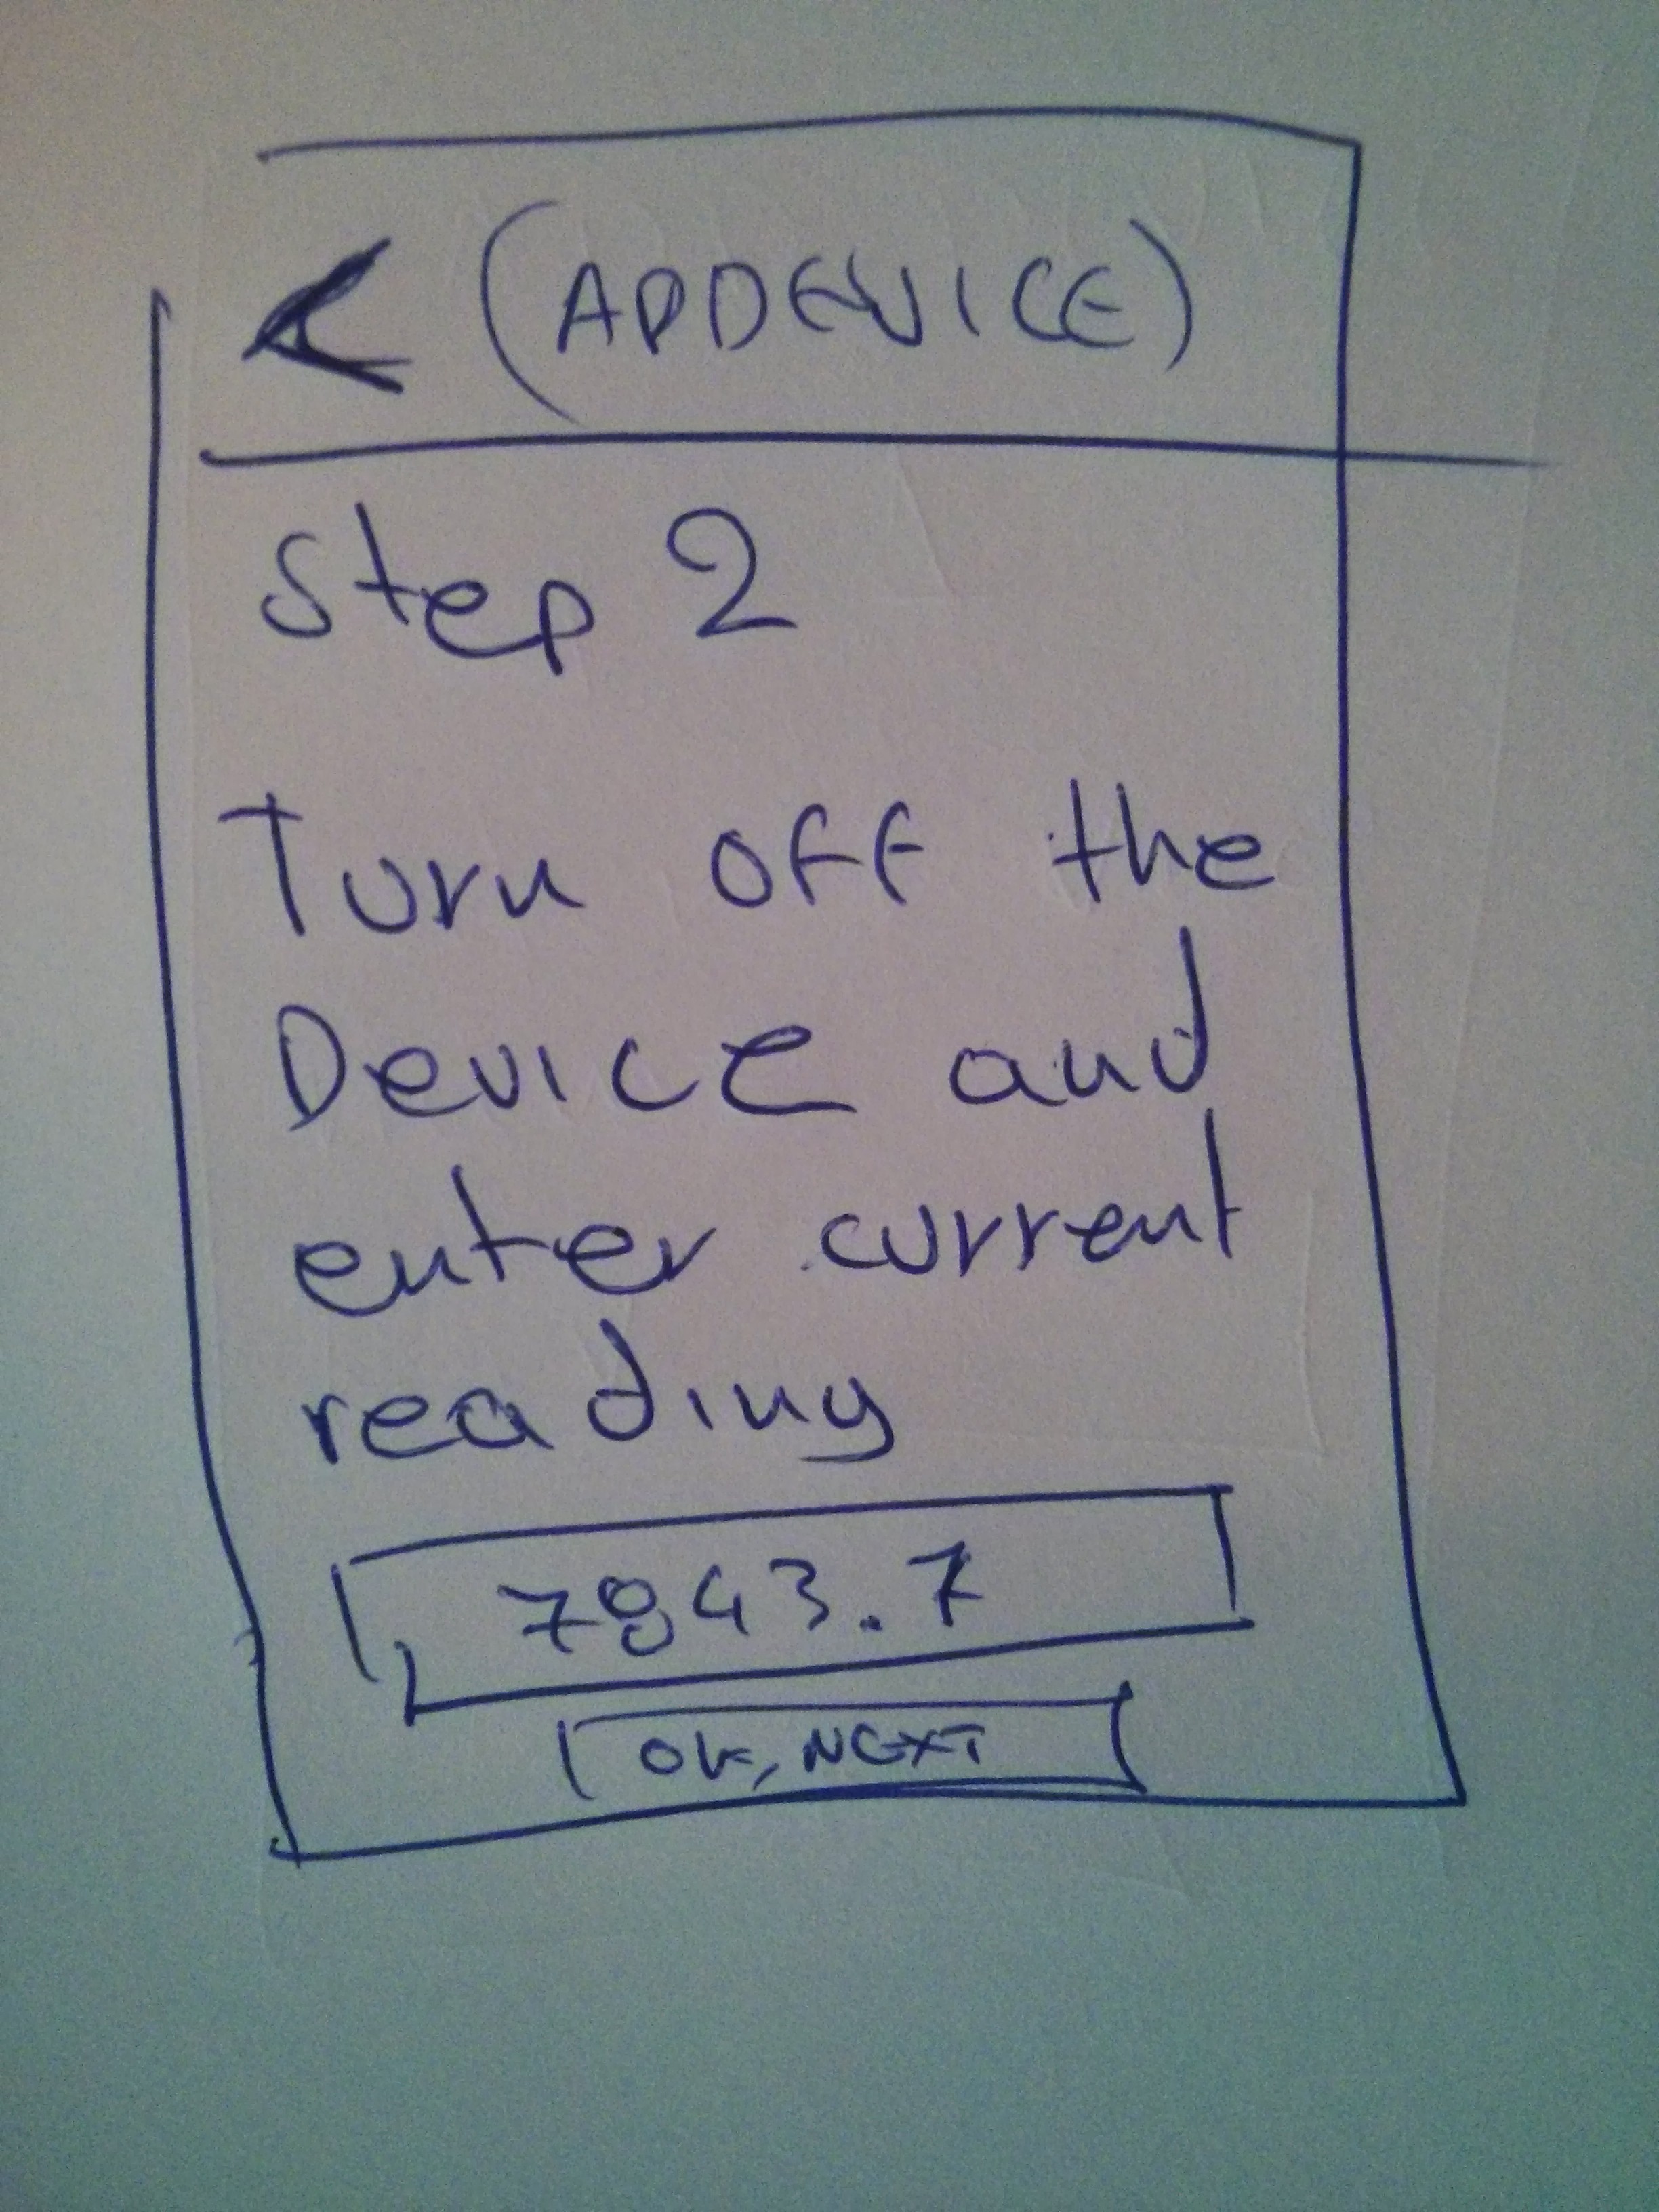 < (ADDEVICE)
Step 2
Turn off the
Device and
enter current
reading
7843.7
OK, NEXT